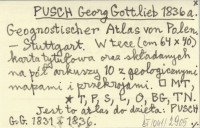 PUSCH Georg Gottlieb 1836a.
Geognostischer Atlas von Polen.
– Stuttgart. W tece (cm 64 x 40):
karta tytułowa oraz składanych
na pół arkuszy 10 z geologicznymi
mapami i przekrojami. □ MT,
* T, P, S, L, O, BG, TN.
Jest to atlas do dzieła: PUSCH
G.G. 1831 i 1836.